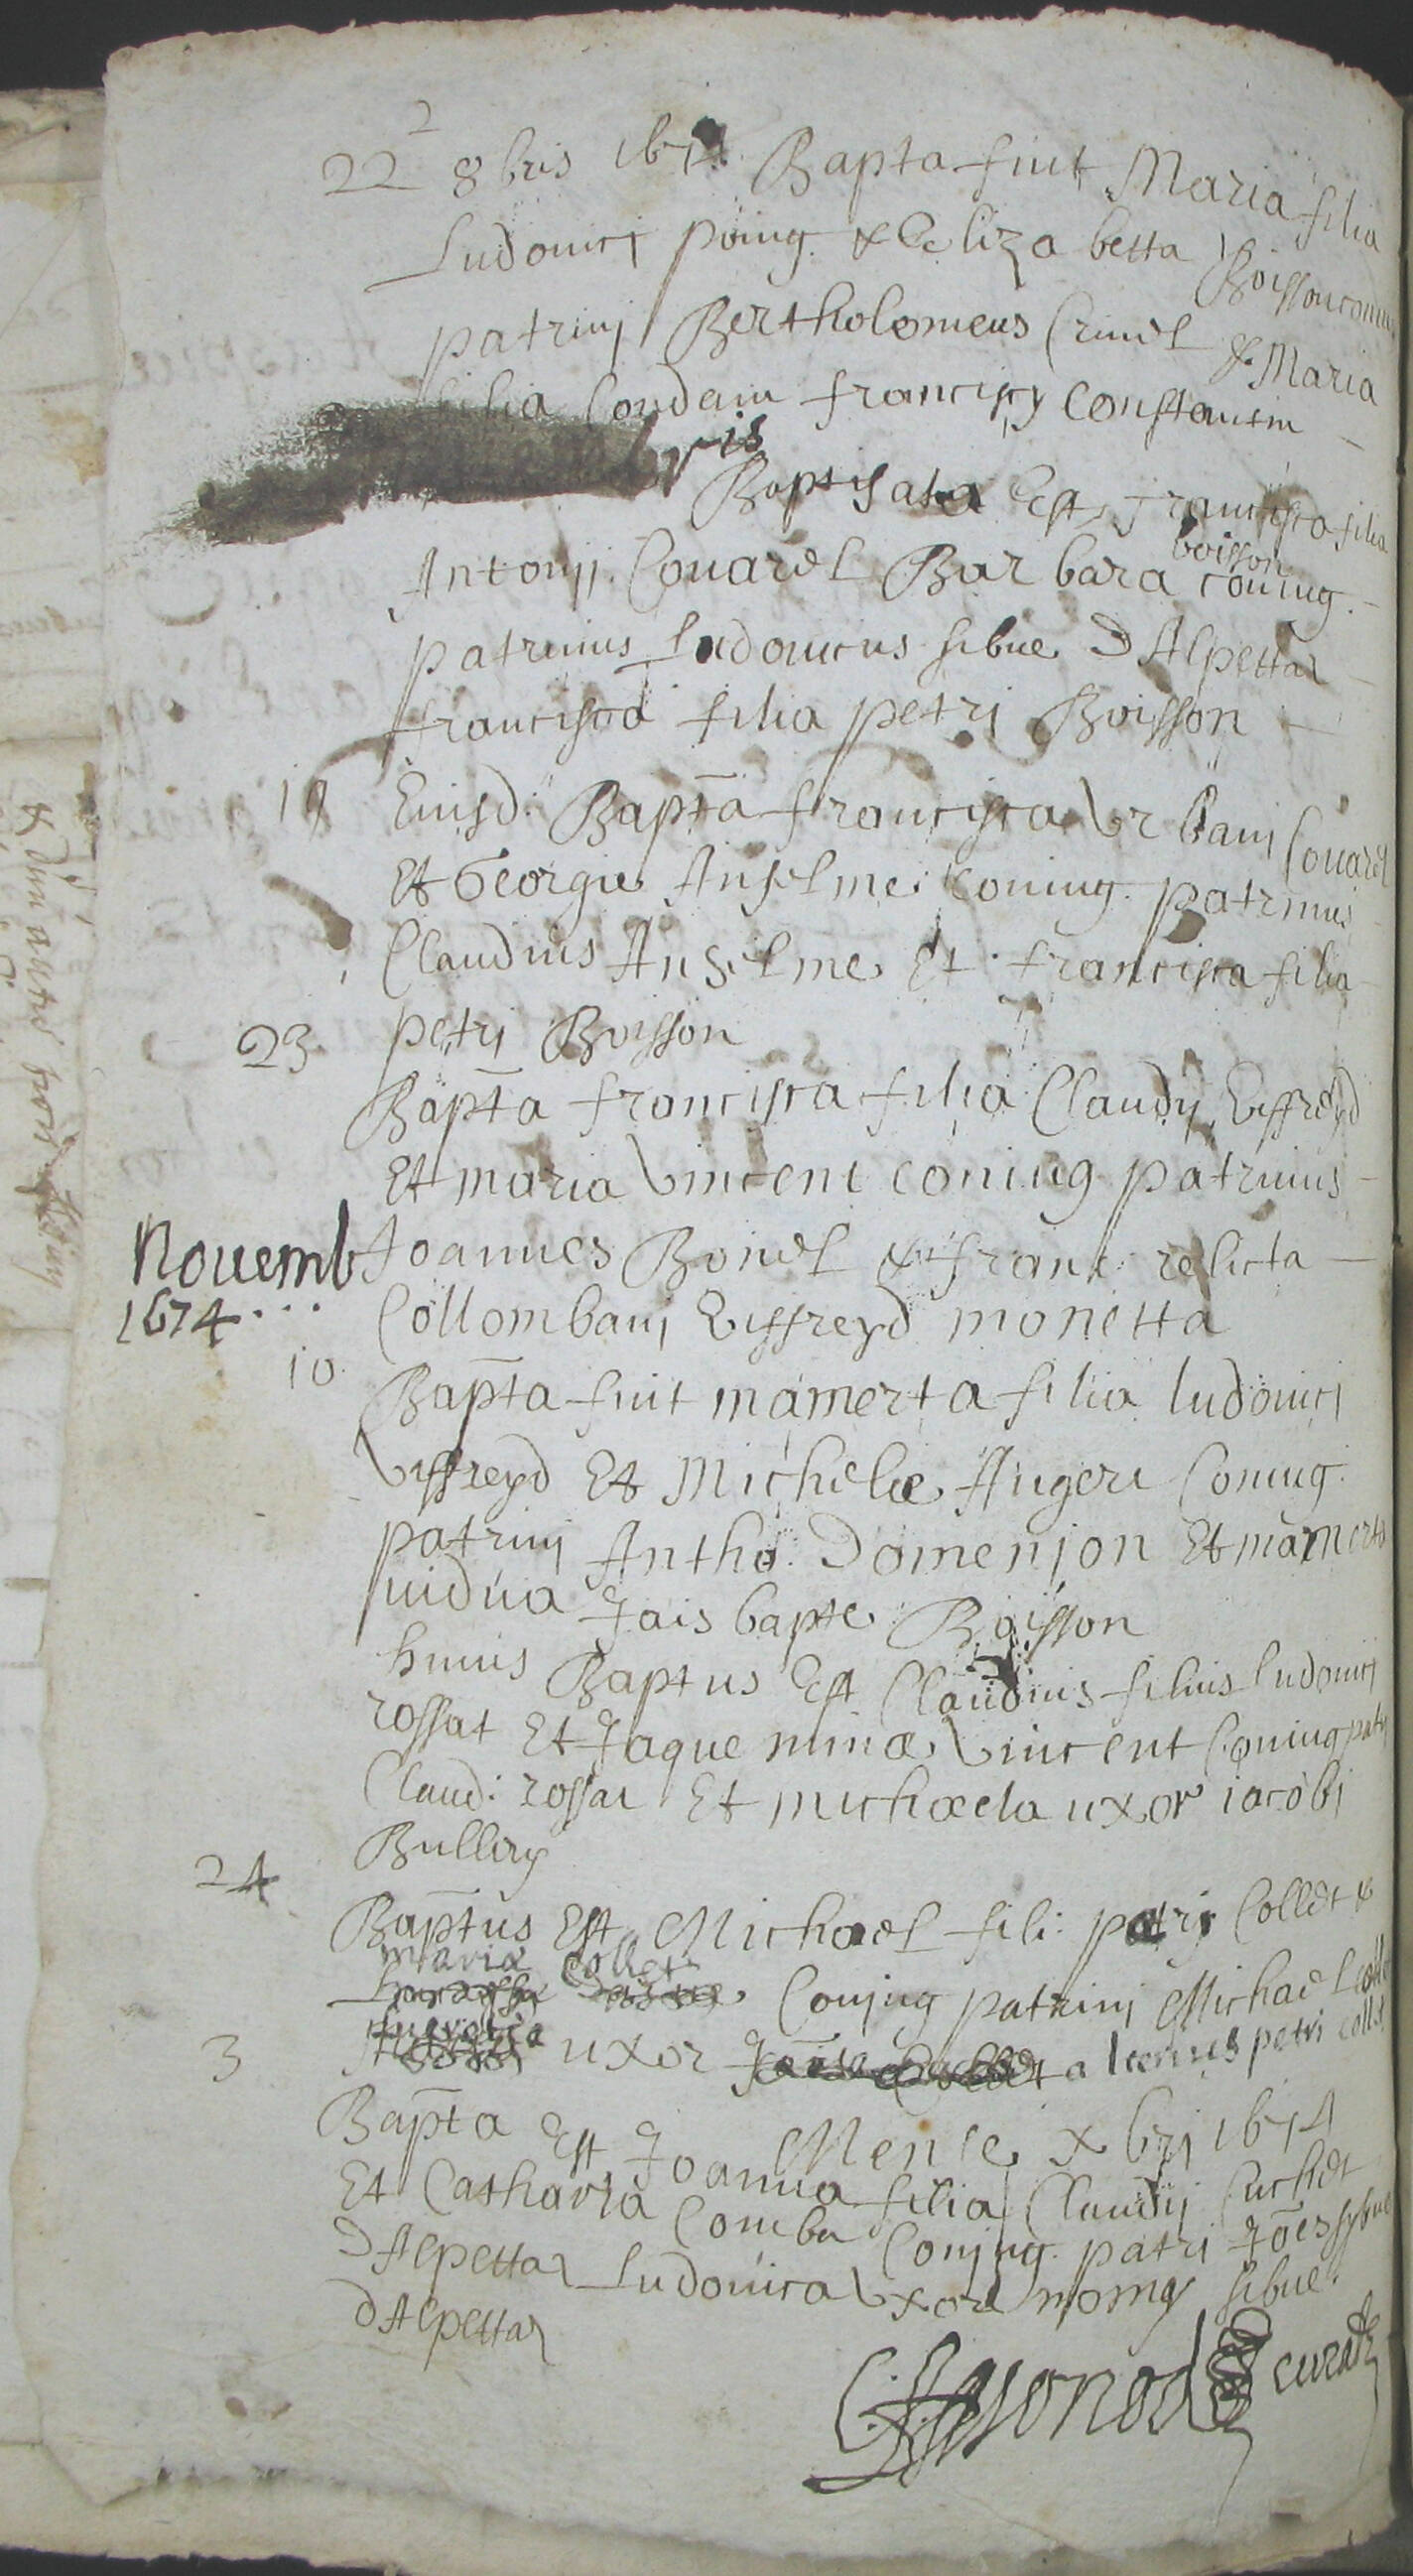 2
22 8bris 1674 Bapta fuit Maria filia
Ludovici poing & Elizabetta Boisson coniug
patrinj Bertholomeus Crinel & Maria
filia Condam francisci Constantin
bris
Baptisata Est francisca filia
boisson
Antonij Couarel Barbara coniug.
patrinus Ludovicus sibue D Alpettaz
francisca filia petri Boisson
19 Eiusd: Bapta francisca Urbani Couarel
Et Georgie Anselme coniug. patrinus
Claudius Anselme Et francisca filia
23 petri Boisson
Bapta francisca filia Claudij Eiffreyd
Et maria Vincent coniug patrinus
Novemb Joannes Bonel & franc: relicta
1674... Collombani Eiffreyd monetta
10 Bapta fuit mamerta filia ludovici
Viffreyd Et Michelæ Augert Coniug.
patrinj Antho. Domenjon Et mamerta
vidua Jais bapte Boisson
huius Baptus Est Claudius filius ludovici
rossat Et Jaqueminæ Vincent Coniug patr
Claud: rossat Et michaela uxor iacobi
Bulliez
24 Baptus Est Michael fili: petri Collet &
maria Collet
Conjug patrinj Michael collet
3 uxor alterius petri collet
Mense xbrj 1674
Bapta Est Joanna filia Claudij Cuchet
Et Catharia Comba Conjug. patri Joes sybue
D Alpettaz Ludovica Uxor sibue.
D Alpettaz
curatus